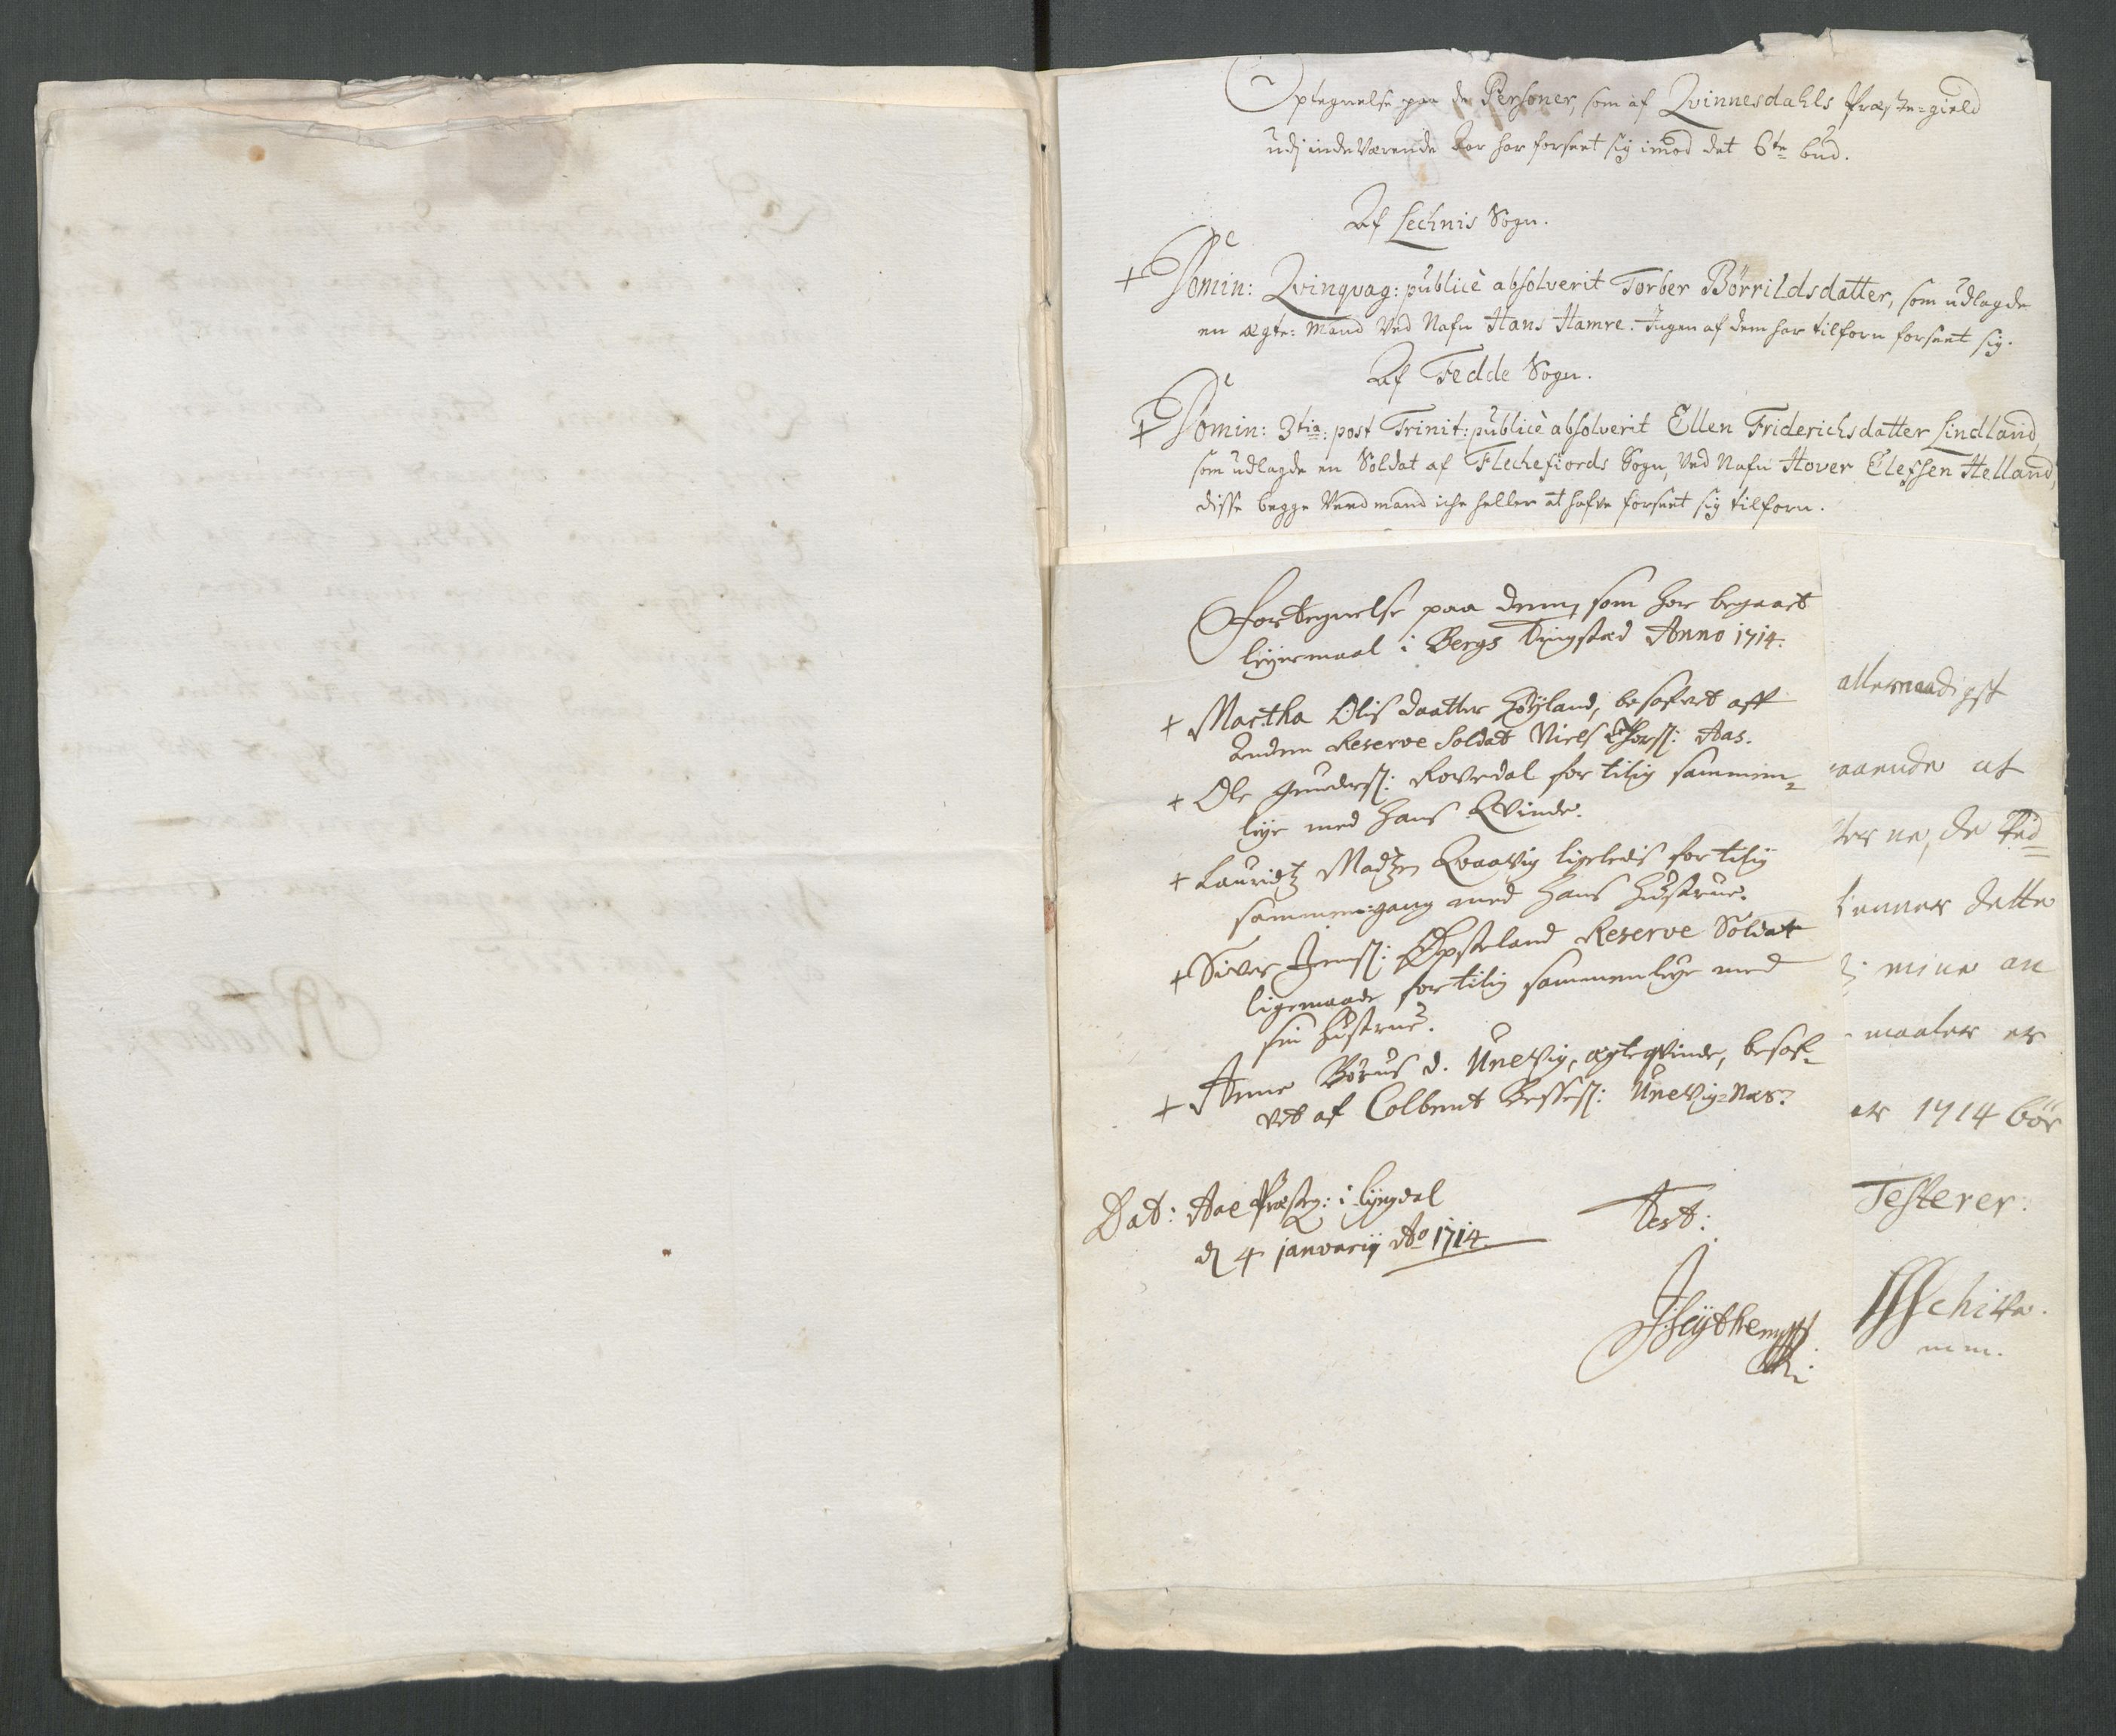 Optegnelse paa de Personer, som af Qvinnesdahls Præste-gield
udj indeværende Aar har forseet sig imod det 6te bud.
Af Lechnis Sogn.
+ Domin: Qvinqvag: publicè absolverit Torber Børrildsdatter, som udlagde
en ægte: Mand ved Nafn Hans Hamre. Ingen af dem har tilforn forseet sig.
Af Fedde Sogn.
+ Domin: 3tia: post Trinit: publicè absolverit Ellen Friderichsdatter Lindland,
som udlagde en Soldat af Flechefiords Sogn, ved Nafn Hover Elefsen Helland,
disse begge veed mand iche heller at hafve forseet sig tilforn.
Fortegnelse paa dem, som har begaaet
leyermaal i Bergs Tingstæd Anno 1714.
+ Martha Olis daatter Høyland, besofvet aff
Anden Reserve Soldat Niels Thorss: Aas.
+ Ole Gunderss: Rovedal for tilig sammen=
leye med hans Qvinde.
+ Lauridtz Madtzen Qvaavig ligeledis for tilig
sammengang med hans Hustrue.
+ Siver Jenss: Opsteland Reserve Soldat
ligemaade for tilig sammenleye med
sin Hustrue.
+ Anne Børus d. Unevig, ægteqvinde, besof-
vet af Colbent Bessess: Unevig=Nes.
Dat: Aae Præsteg: i Lyngdal
d 4 januarij Ao 1714.
Test:
allernaadigst
aarende at
ter ne, de Ved=
kienner dette
mine an
maater er
er 1714 bør
Testerer:
mm.